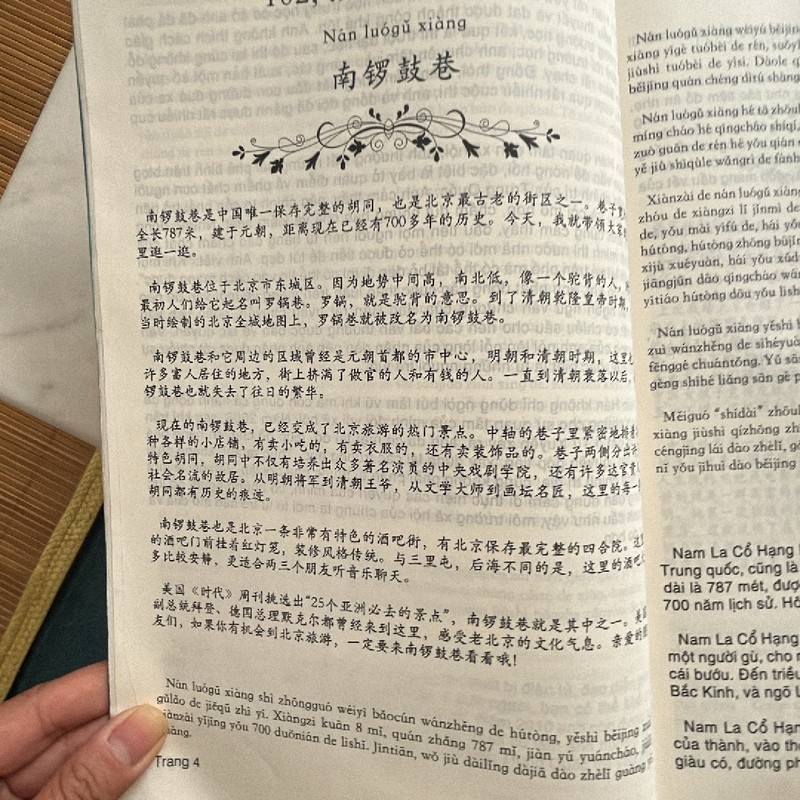 Nán luógǔ xiàng
南锣鼓巷
南锣鼓巷是中国唯一保存完整的胡同，也是北京最古老的街区之一。巷子宽
全长787米，建于元朝，距离现在已经有700多年的历史。今天，我就带领大家
里逛一逛。
南锣鼓巷位于北京市东城区。因为地势中间高，南北低，像一个驼背的人，
最初人们给它起名叫罗锅巷。罗锅，就是驼背的意思。到了清朝乾隆皇帝时期，
当时绘制的北京全城地图上，罗锅巷就被改名为南锣鼓巷。
南锣鼓巷和它周边的区域曾经是元朝首都的市中心，明朝和清朝时期，这里
许多富人居住的地方，街上挤满了做官的人和有钱的人。一直到清朝衰落以后，
锣鼓巷也就失去了往日的繁华。
现在的南锣鼓巷，已经变成了北京旅游的热门景点。中轴的巷子里紧密地排着
种各样的小店铺，有卖小吃的，有卖衣服的，还有卖装饰品的。巷子两侧分出许
特色胡同，胡同中不仅有培养出众多著名演员的中央戏剧学院，还有许多达官贵
社会名流的故居。从明朝将军到清朝王爷，从文学大师到画坛名匠，这里的每一
胡同都有历史的痕迹。
南锣鼓巷也是北京一条非常有特色的酒吧街，有北京保存最完整的四合院。这
的酒吧门前挂着红灯笼，装修风格传统。与三里屯，后海不同的是，这里的酒吧
多比较安静，更适合两三个朋友听音乐聊天。
美国《时代》周刊挑选出“25个亚洲必去的景点”，南锣鼓巷就是其中之一。美国
副总统拜登、德国总理默克尔都曾经来到这里，感受老北京的文化气息。亲爱的朋
友们，如果你有机会到北京旅游，一定要来南锣鼓巷看看哦！
Nán luógǔ xiàng shì zhōngguó wéiyī bǎocún wánzhěng de hútòng, yěshì běijīng zuì
gǔlǎo de jiēqū zhī yī. Xiàngzi kuān 8 mǐ, quán zhǎng 787 mǐ, jiàn yú yuáncháo,
xiànzài yǐjīng yǒu 700 duōnián de lìshǐ. Jīntiān, wǒ jiù dàilǐng dàjiā dào zhèlǐ guàng
Trang 4
Nán luógǔ xiàng wèiyú běijīn
xiàng yīgè tuóbèi de rén, suǒyǐ
jiùshì tuóbèi de yìsi. Dàole q
běijīng quán chéng dìtú shàng
Nán luógǔ xiàng hé tā zhōub
míng cháo hé qīngcháo shíqí,
zuò guān de rén hé yǒu qián
yě jiù shīqùle wǎngrì de fánh
Xiànzài de nán luógǔ xiàng
zhóu de xiàngzi lǐ jǐnmì de
de, yǒu mài yīfú de, hái yǒ
hútòng, hútòng zhōng bùjǐn
xìjù xuéyuàn, hái yǒu xǔd
jiāngjūn dào qīngcháo wán
yītiáo hútòng dōu yǒu lìsh
Nán luógǔ xiàng yěshì b
zuì wánzhěng de sìhéyuàn
fēnggé chuántǒng. Yǔ sān
gèng shìhé liǎng sān gè p
Měiguó “shídài” zhōuk
xiàng jiùshì qízhōng zh
céngjīng lái dào zhèlǐ, g
nǐ yǒu jīhuì dào běijīng
Nam La Cổ Hạng
Trung quốc, cũng là
dài là 787 mét, đượ
700 năm lịch sử. Hô
Nam La Cổ Hạng
một người gù, cho n
cái bướu. Đến triều
Bắc Kinh, và ngõ L
Nam La Cổ Hạng
của thành, vào th
giàu có, đường ph